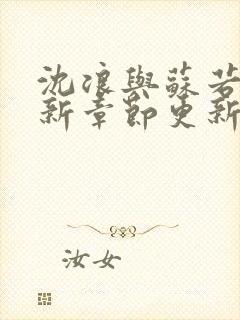 沈浪與蘇若
新章節更新
汝女